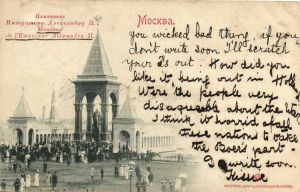 Памятникъ
Императору Александру II.
Monument
de l'Empereur Alexandre II.
Москва.
you wicked bad thing, if you
don't write soon I'll scratch
your out. How did you
like it being out in Holl
Were the people very
disagreeable about the War
I think it horrid all
these nations to take
the Boer's part -
write soon.